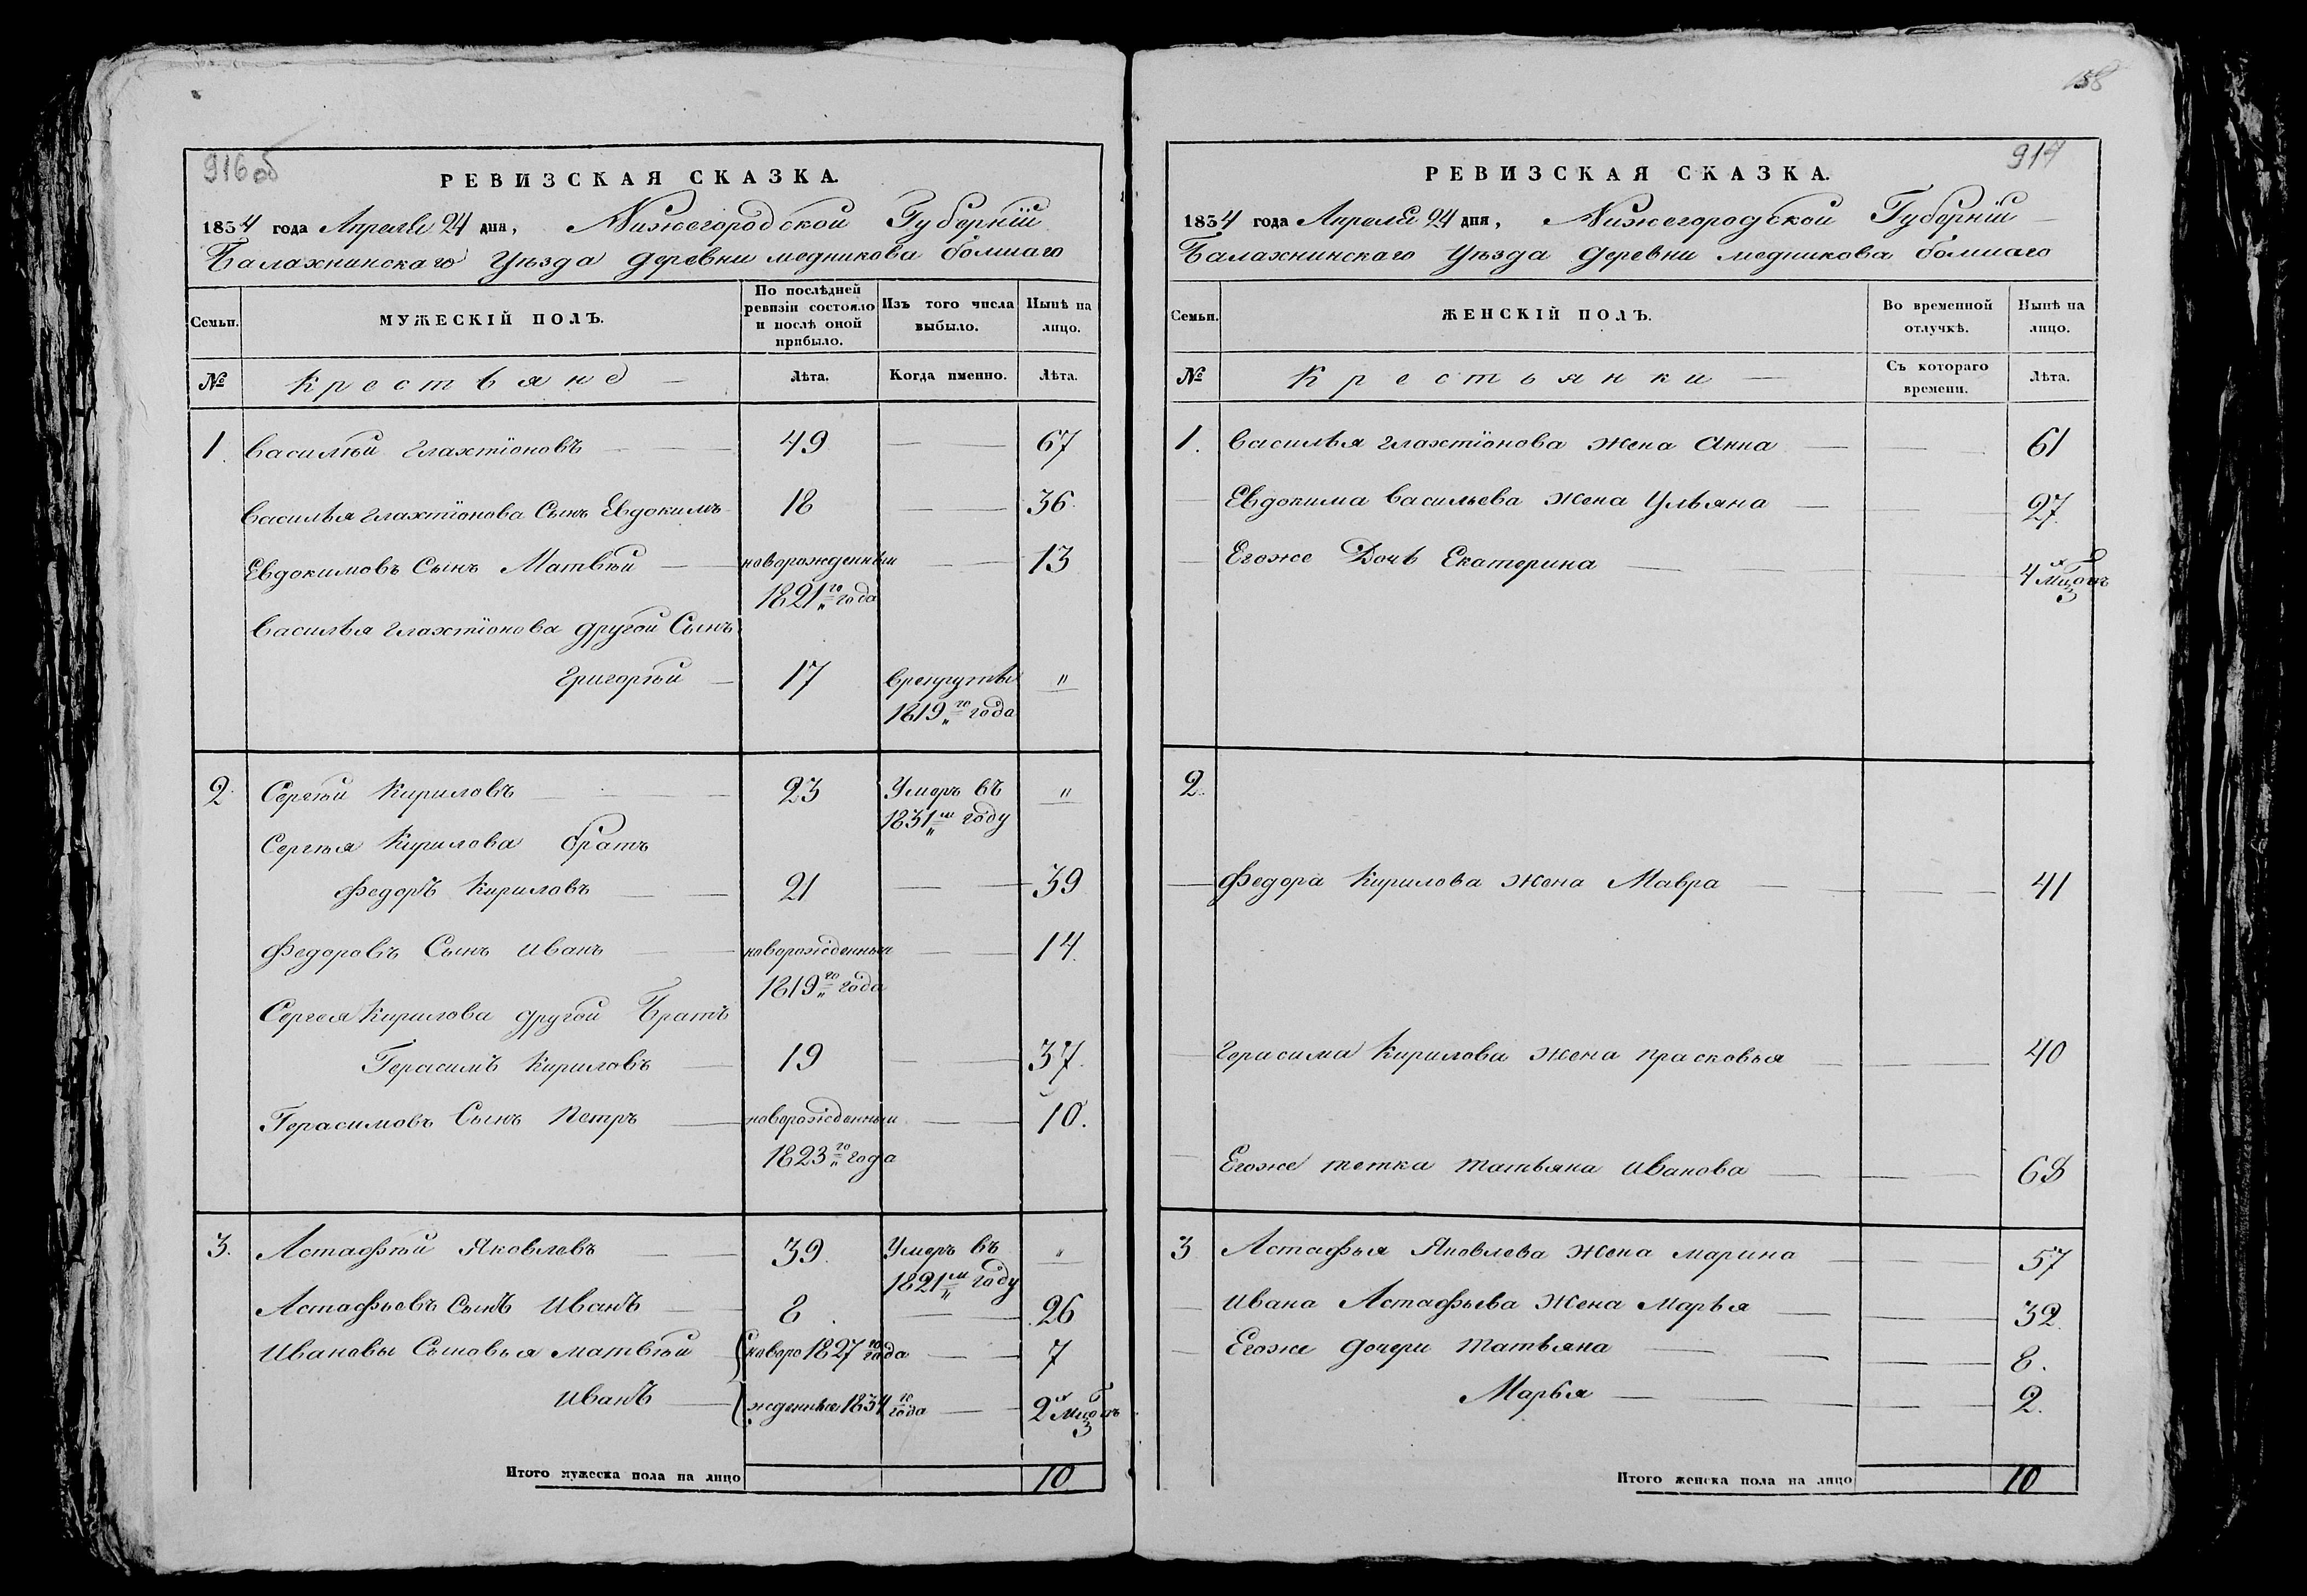 916 об
РЕВИЗСКАЯ СКАЗКА.
1834 года Апреля 24 дня, Нижегородской Губерніи
Балахнинскаго Уѣзда деревни медникова болшаго
Семьи.
МУЖЕСКІЙ ПОЛЪ.
По послѣдней ревизіи состояло и послѣ оной прибыло.
Изъ того числа выбыло.
Нынѣ на лицо.
№ Крестьяне Лѣта. Когда именно. Лѣта.
1. Василѣй Глахтіоновъ 49 67
Василья Глахтіонова Сынъ Евдокимъ 18 36.
Евдокимовъ Сынъ Матвѣй новорожденный 13
1821го года
Василья Глахтіонова другой Сынъ
Григорѣй 17 врекруты "
1819го года
2. Сергѣй Кириловъ 23 Умеръ въ "
1831м году
Сергѣя Кирилова братъ
Федоръ Кириловъ 21 39
Федоровъ Сынъ иванъ новорожденный 14.
1819го года
Сергея Кирилова другой Братъ
Герасимъ Кириловъ 19 37.
Герасимовъ Сынъ Петръ новорожденный 10.
1823го года
3. Астафѣй Яковлевъ 39. Умеръ въ "
1821м году
Астафьевъ Сынъ Иванъ 8. 26
Ивановы Сыновья матвѣй новоро 1827го года 7
иванъ жденныя 1834го года 2х
Итого мужеска пола на лицо 10
158
917
РЕВИЗСКАЯ СКАЗКА.
1834 года Апреля 24 дня, Нижегородской Губерніи
Балахнинскаго Уѣзда деревни медникова болшаго
Семьи.
ЖЕНСКІЙ ПОЛЪ.
Во временной отлучкѣ.
Нынѣ на лицо.
№ Крестьянки Съ котораго времени. Лѣта.
1. Василья Глахтіонова жена Анна 61
Евдокима Васильева жена Ульяна 27.
Егоже Дочь Екатерина 4х
2.
Федора Кирилова жена Мавра 41
Герасима Кирилова жена прасковья 40
Егоже тетка татьяна иванова 68
3 Астафья Яковлева жена марина 57
ивана Астафьева жена Марья 32.
Егоже дочери татьяна 8.
Марья 2.
Итого женска пола на лицо 10